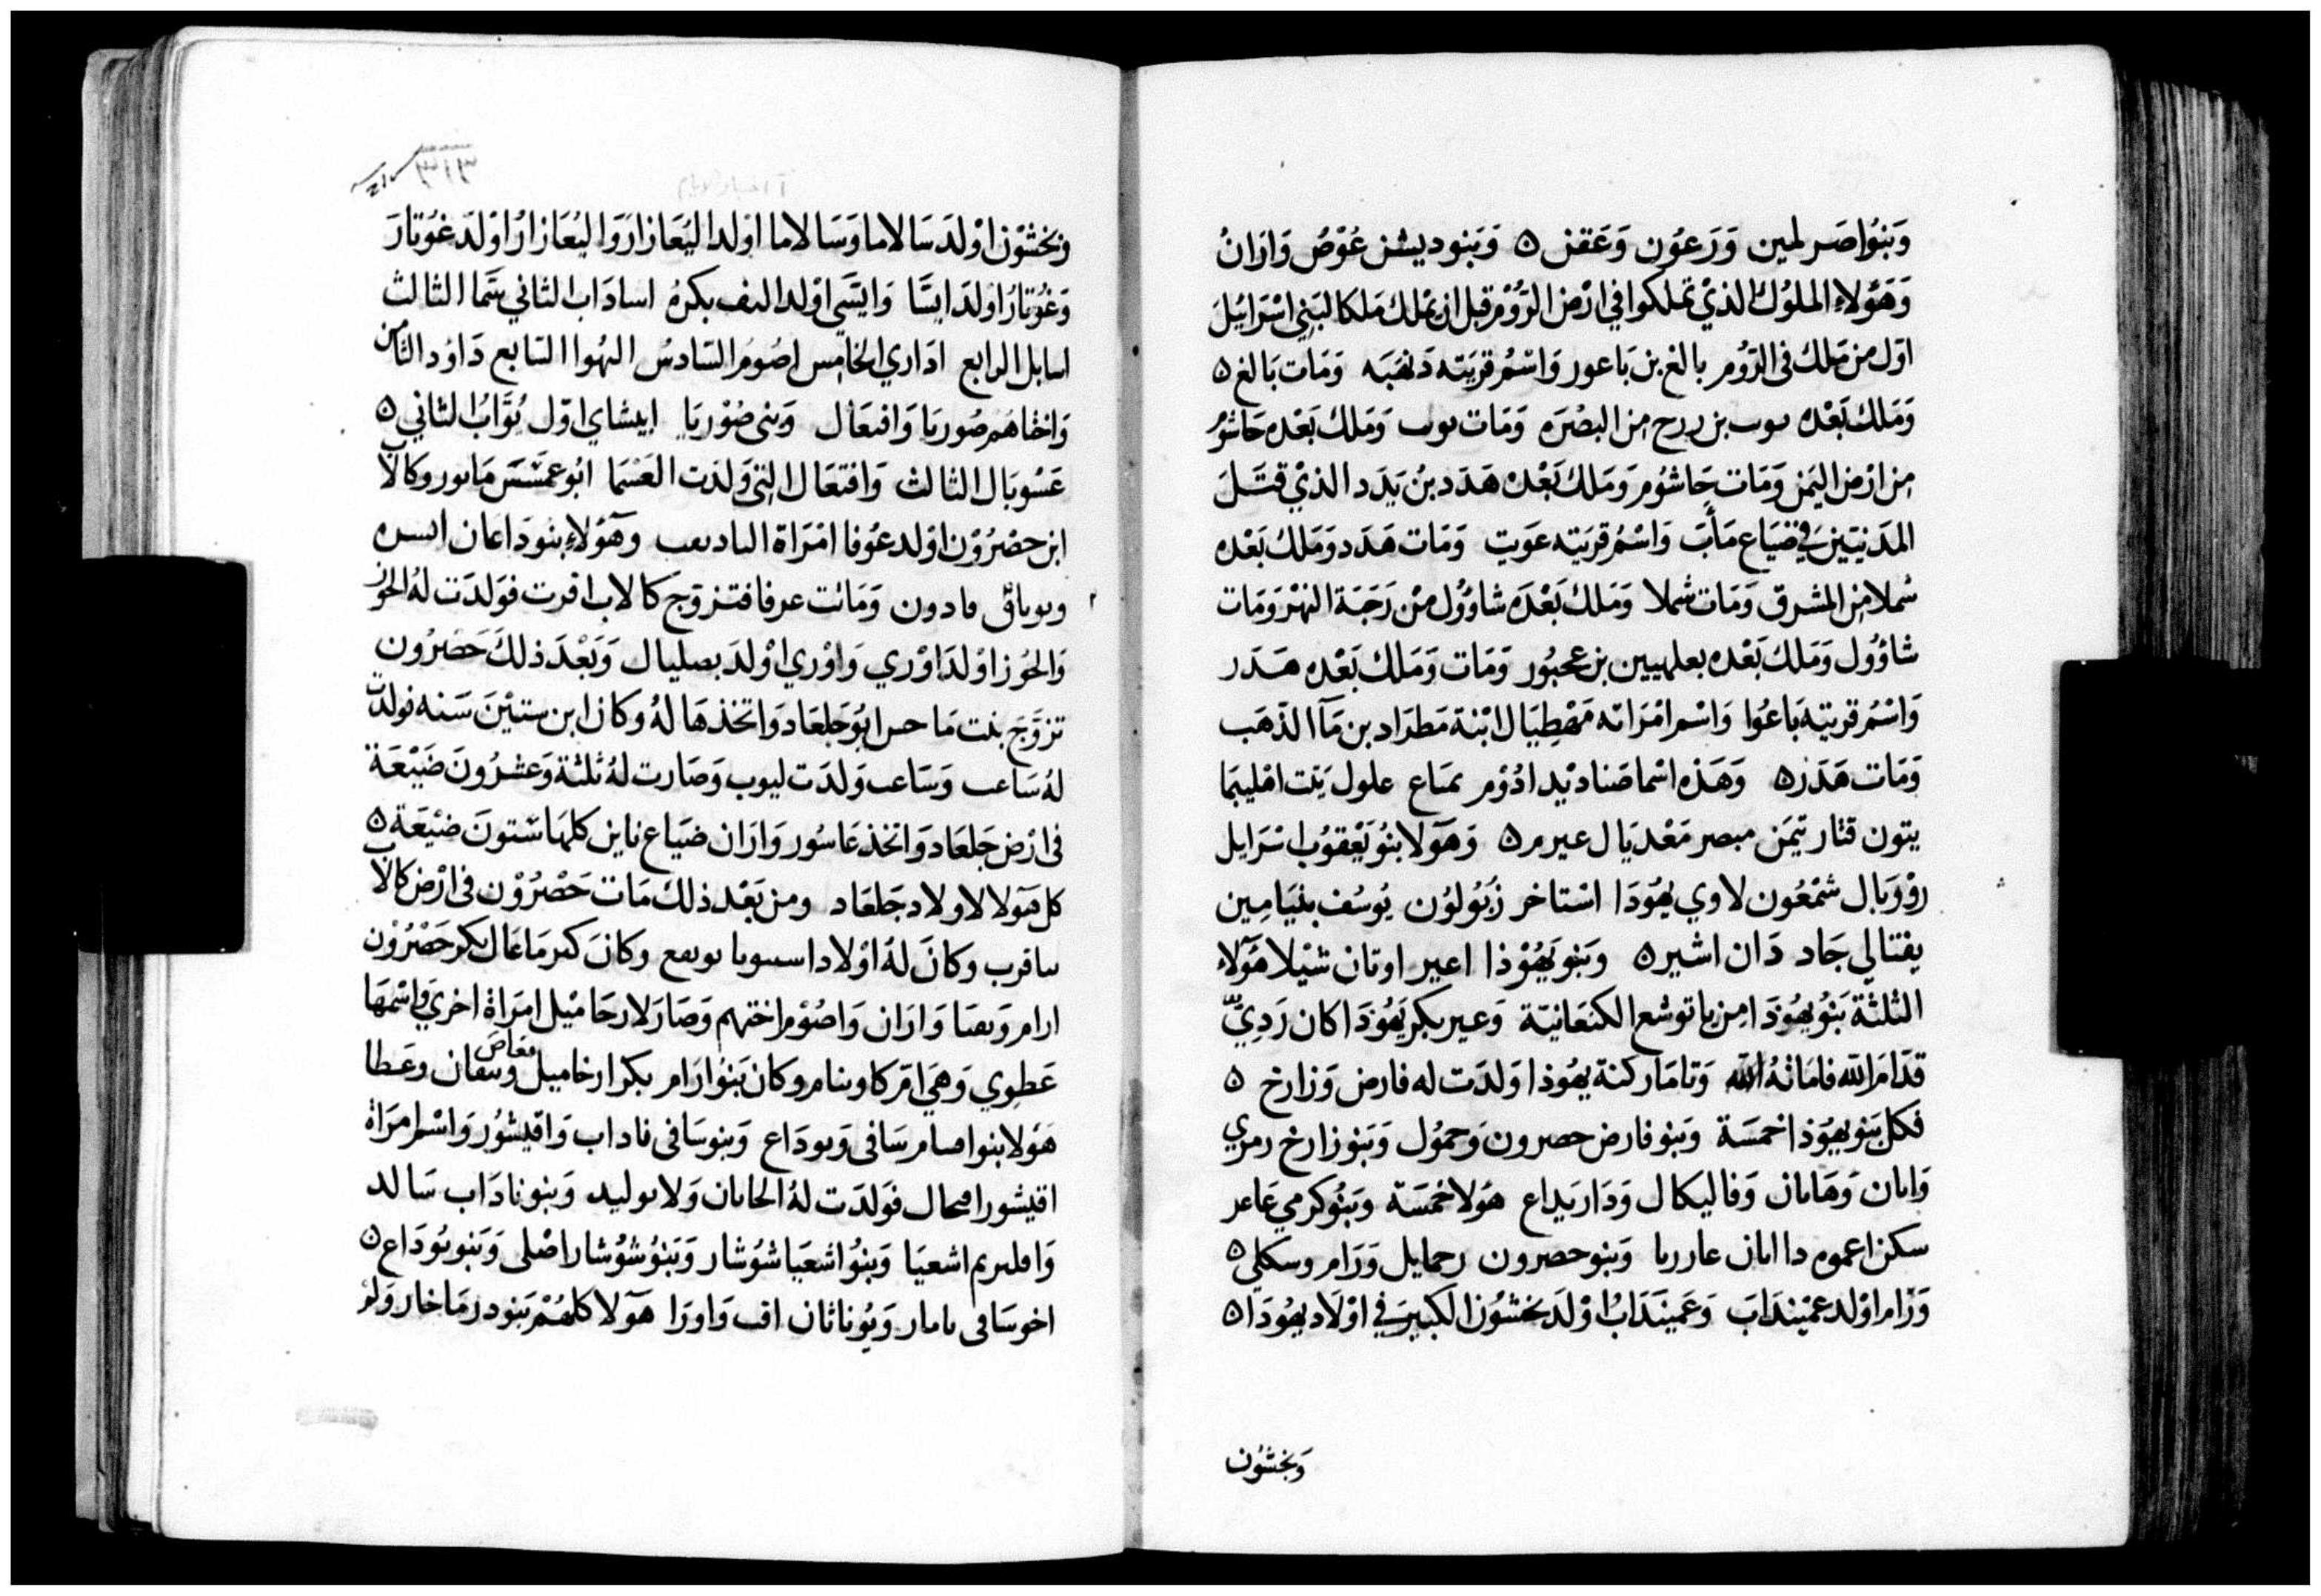 وَبَنُوا صَر لمين وَرَعوُن وَعَقن ه وَبَنو ديشن عُوْصُ وَارَانُ
وَهَؤلاء الملوُك الذيْ تملكوا في ارْض الرُّوْم قبل ان يملك مَلكا لبَنِي اسْرَايُلَ
اوّل من مَلك فى الرُّوم بالغ بن بَاعور وَاسْمُ قريَته دَنهَبَه وَمَات بَالغ ه
وَمَلك بَعْده يوب بن ررح من البصْرَه وَمَات يوب وَمَلك بَعْده حَاشوُم
من ارْض اليَمن وَمَات حَاشوُم وَمَلك بَعْده هَدَد بنُ يَدَد الذيْ قتَلَ
المدَنيَيْنَ في ضيَاع مَأبَ وَاسْمُ قريَته عَويت وَمَات هَدَد وَمَلك بَعْده
شملا من المشرق وَمَات شملا وَمَلك بَعْدَه شاوُول منْ رَحَبَة النهْر وَمَات
شاؤُول وَمَلك بَعْده بعلهيين بن عحبُور وَمَات وَمَلك بَعْده هَدَر
وَاسْمُ قريته بَاعُوا وَاسْم امْرَاته مَهْطِيَال ابْنة مَطرَاد بن مَآ الذهَب
وَمَات هَدَر ه وَهَذه اسْما صَناديْد ادُوْم تمنَاع علول يَتت اهْليبَما
يتون قنار تيمَن مبصر مَعْديَال عيرم ه وَهَوَلا بَنُو يَعْقوُب اسْرَايل
روُوَبال شمْعُون لاوي يهُوَدَا اسْتاخر زَبُولوُن يُوسُف بنيَامِين
يفتالي جَاد دَان اشير ه وَبَنو يَهُوْذا اعير اوتان شيْلا هَؤلاء
الثلثة بَنُو يهُوْدَا من باتوشع الكنعَانيّة وَعير بكر يَهُوْدَا كان رَدِيّ
قدّام الله فامَاتهُ الله وَتامَار كنة يهُوذا وَلدَت له فارص وَزارح ه
فكل بَنو يهُوْذا خمسَة وَبَنو فارص حصرون وَحموُل وَبَنو زارخ رمري
وَاىان وَهَامان وَفاليكال وَدَارَيداع هَولا خمسَة وَبَنُو كرمي عَاعر
سكن اعموم دا ابان عار ربا وَبَنو حصرون رحمايل وَرَام وسكلي ه
وَرَام اوْلد عمْينداب وَعَمينَدَابُ اوْلَد بخشوُن الكبيرَ في اوْلَاد يهُوَدَا ه
وَبخشوُن
٣١٣
وَبخشوْن اوْلدَ سَالاما وَسَالاما اوْلد اليُعَازارَ وَاليُعَازارُ اوْلدَ عُوبَارَ
وَعُوبَارُ اوْلدَ ايسَّا وَايسَّى اوْلد اليف بكرهُ اسادَاب الثاني شمّا الثالث
اسابل الرابع ادَاري الخامِس اصُومُ السَّادسُ الهُوا السَّابع دَاوُد الثامن
وَاختاهُم صُوريَا وَافتعَال وَبَنى صُوْريَا ابيشاي اوّل يُوَّابُ الثاني ه
عَسْويَال الثالث وَافتعَال التي وَلدَت العَسْمَا ابُو عمَسَّسَ مَاىور وكالآب
ابن حضرُوْن اوْلد عزُوفا امْرَاة وهَؤلاءِ بنو دَاعان
فادون وَمَاتت عرفا فتزوّج كالاب افرت فوَلدَت لهُ الحوز
وَالحُور اوْلدَ اوْري وَاوْري اوْلدَ بصليال وَبَعْدَ ذلكَ حَصَرُون
تزوَّجَ بنت مَاحس ابُو جَلعَاد وَاتخذهَا لهُ وكان ابن ستيْنَ سَنه فولدَت
لهُ سَاعب وَسَاعب وَلدَت ليوب وَصَارت لهُ ثلثة وَعشرُونَ ضَيْعَة
فى ارْض جَلعَاد وَاتخذ عَاسُور وَارَان ضيَاع ناين كلهَا ستونَ ضيْعَة ه
كل هَؤلا لاولاد جَلعَاد ومن بَعْد ذلك مَات حَصْرُوْن فى ارْض كالاب
سافرب وَكانَ لهُ اوْلاد وكانَ بكر حَصْرُوْن
ارام وَارَان وَاصُوْم اختهم وَصَارَ لارحَاميْل امرَاة اخري وَاسْمهَا
عَطِوي وَهيَ وكان بَنُو ارَام بكر ارخاميل مَعَاصَ وَعطا
هَولا بنو سَافى وَىودَاع وَبنو سَافى ناداب وَاقيشوُر وَاسْم امرَاة
اقيشور فوَلدَت لهُ وَبنو نادَاب سَالد
وَافليرم اشعيَا وَبنُو اشعيَا شوُشار وَبَنوُ شوُشار اصْلى وَبَنو يُوَدَاع ه
اخو سَافى وَيُوناثان وَاورَا هَوَلا كلهُمْ بَنو درمَاخار وَلمْ